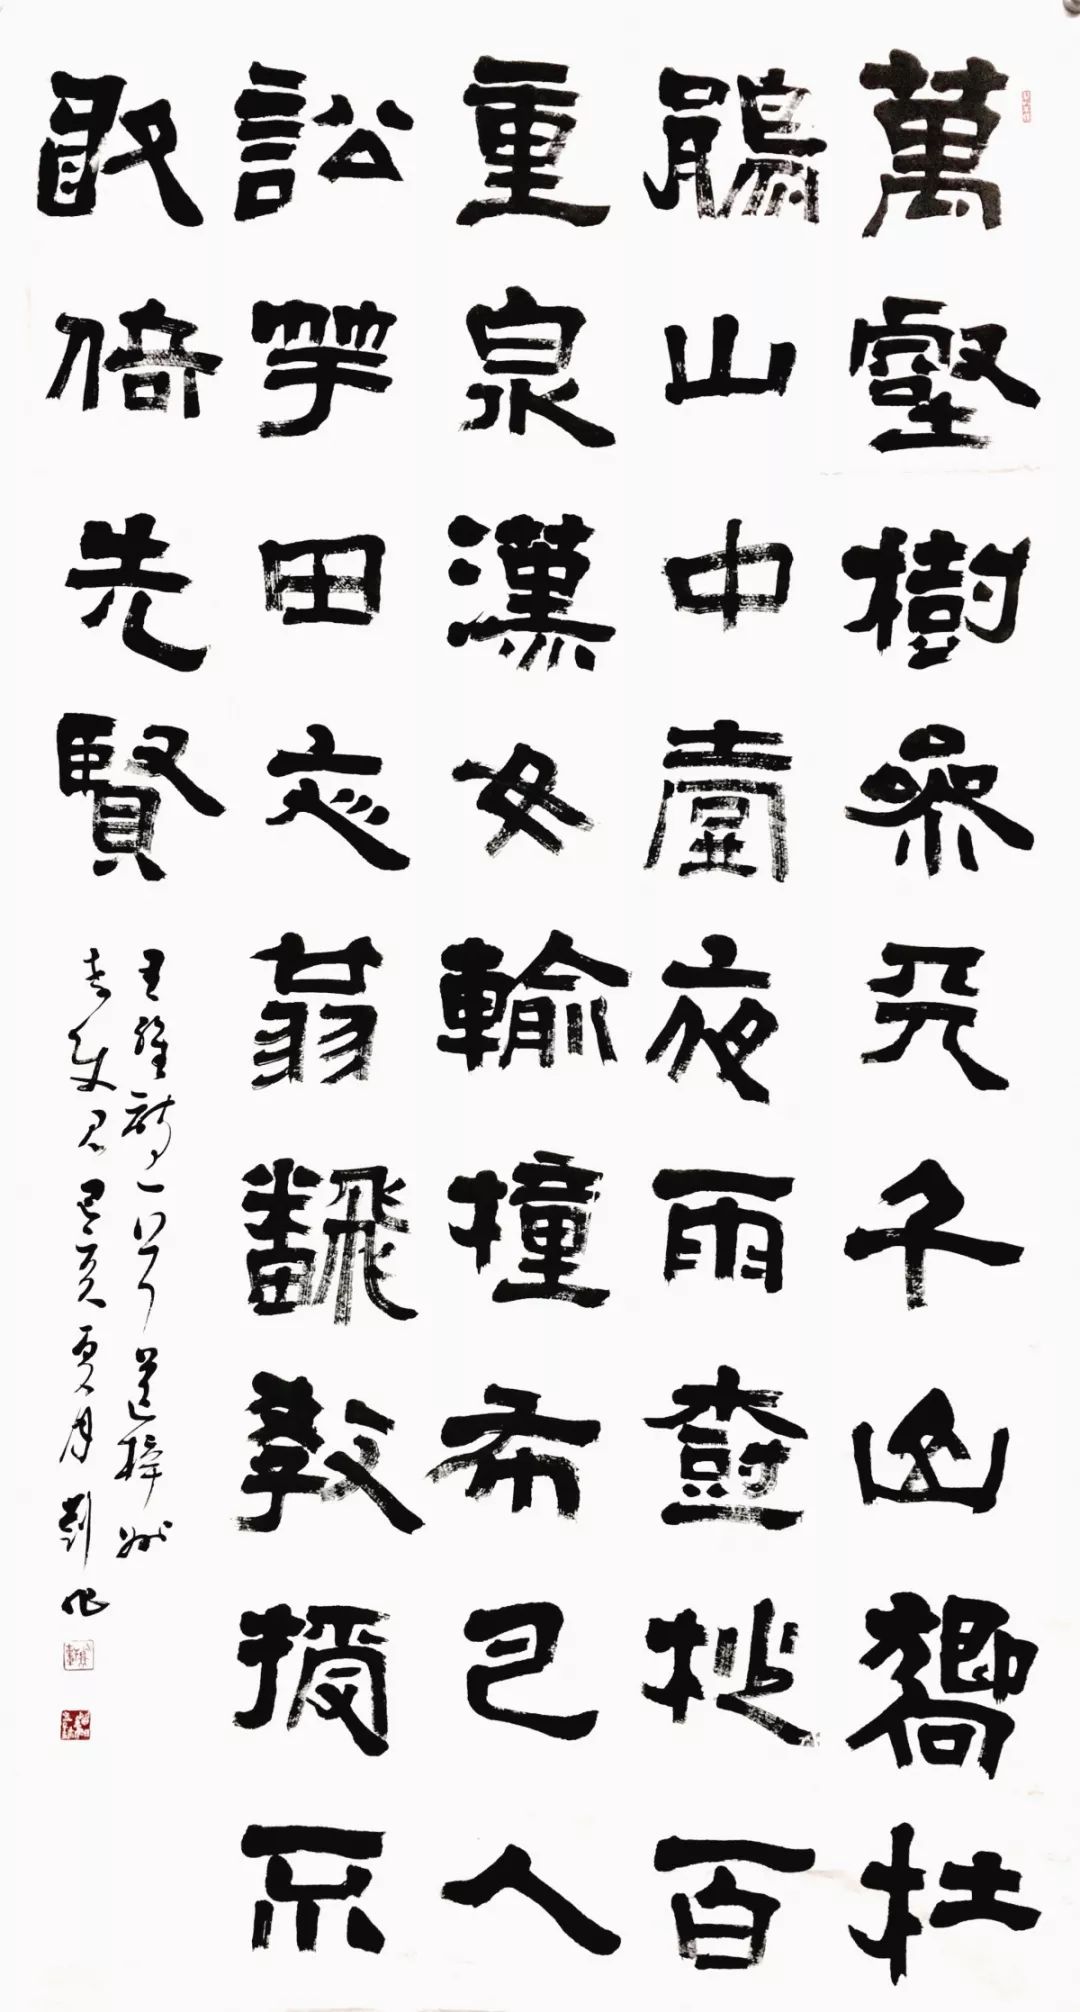 萬壑樹參天千山響杜
鵑山中壹夜雨樹杪百
重泉漢女輸橦布巴人
訟芋田文翁翻教授不
敢倚先賢
王維詩一首送梓州
李使君己亥夏月劉